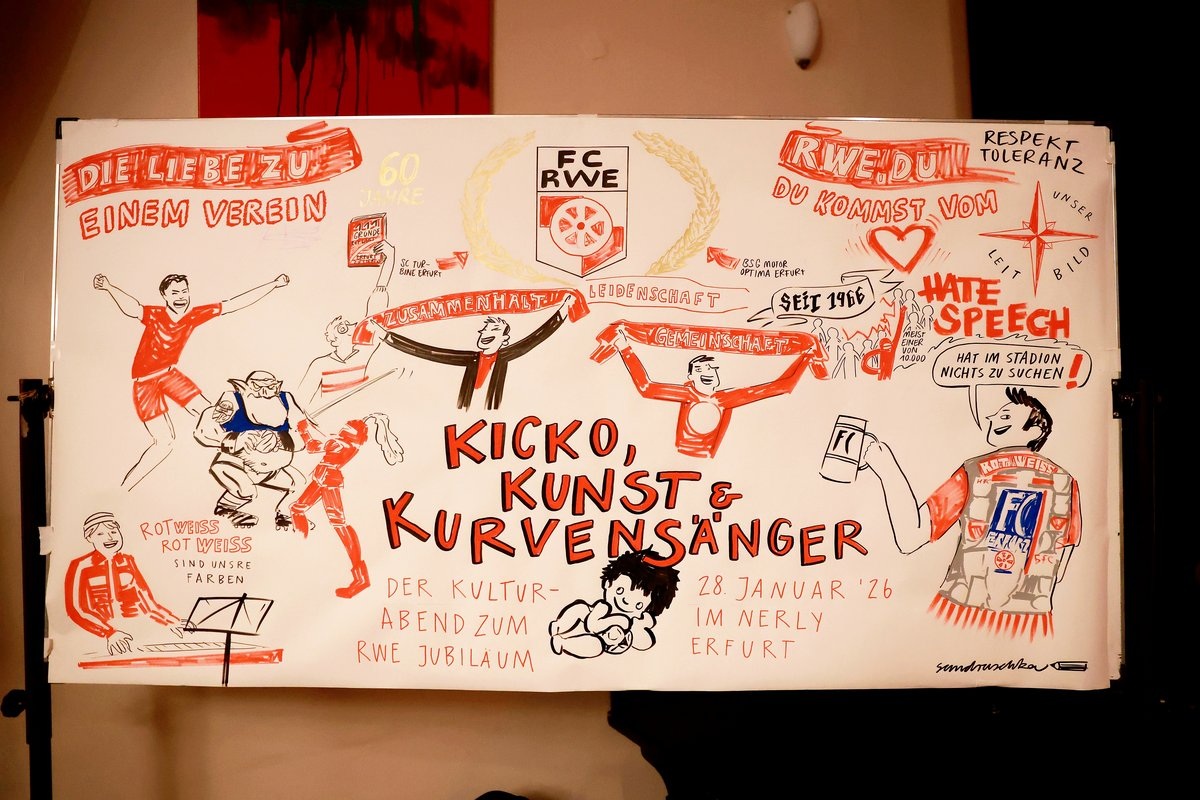 DIE LIEBE ZU
EINEM VEREIN
60
JAHRE
111
GRÜNDE
SC TUR-
BINE ERFURT
FC
RWE
BSG MOTOR
OPTIMA ERFURT
ZUSAMMENHALT
LEIDENSCHAFT
GEMEINSCHAFT
SEIT 1966
RWE, DU
DU KOMMST VOM
RESPEKT
TOLERANZ
UNSER
LEIT BILD
HATE
SPEECH
MEIST
EINER
VON
10.000
HAT IM STADION
NICHTS ZU SUCHEN!
KICKO,
KUNST &
KURVENSÄNGER
DER KULTUR-
ABEND ZUM
RWE JUBILÄUM
28. JANUAR '26
IM NERLY
ERFURT
ROTWEISS
ROT WEISS
SIND UNSRE
FARBEN
FC
ROT WEISS
FC
ERFURT
sandruschka